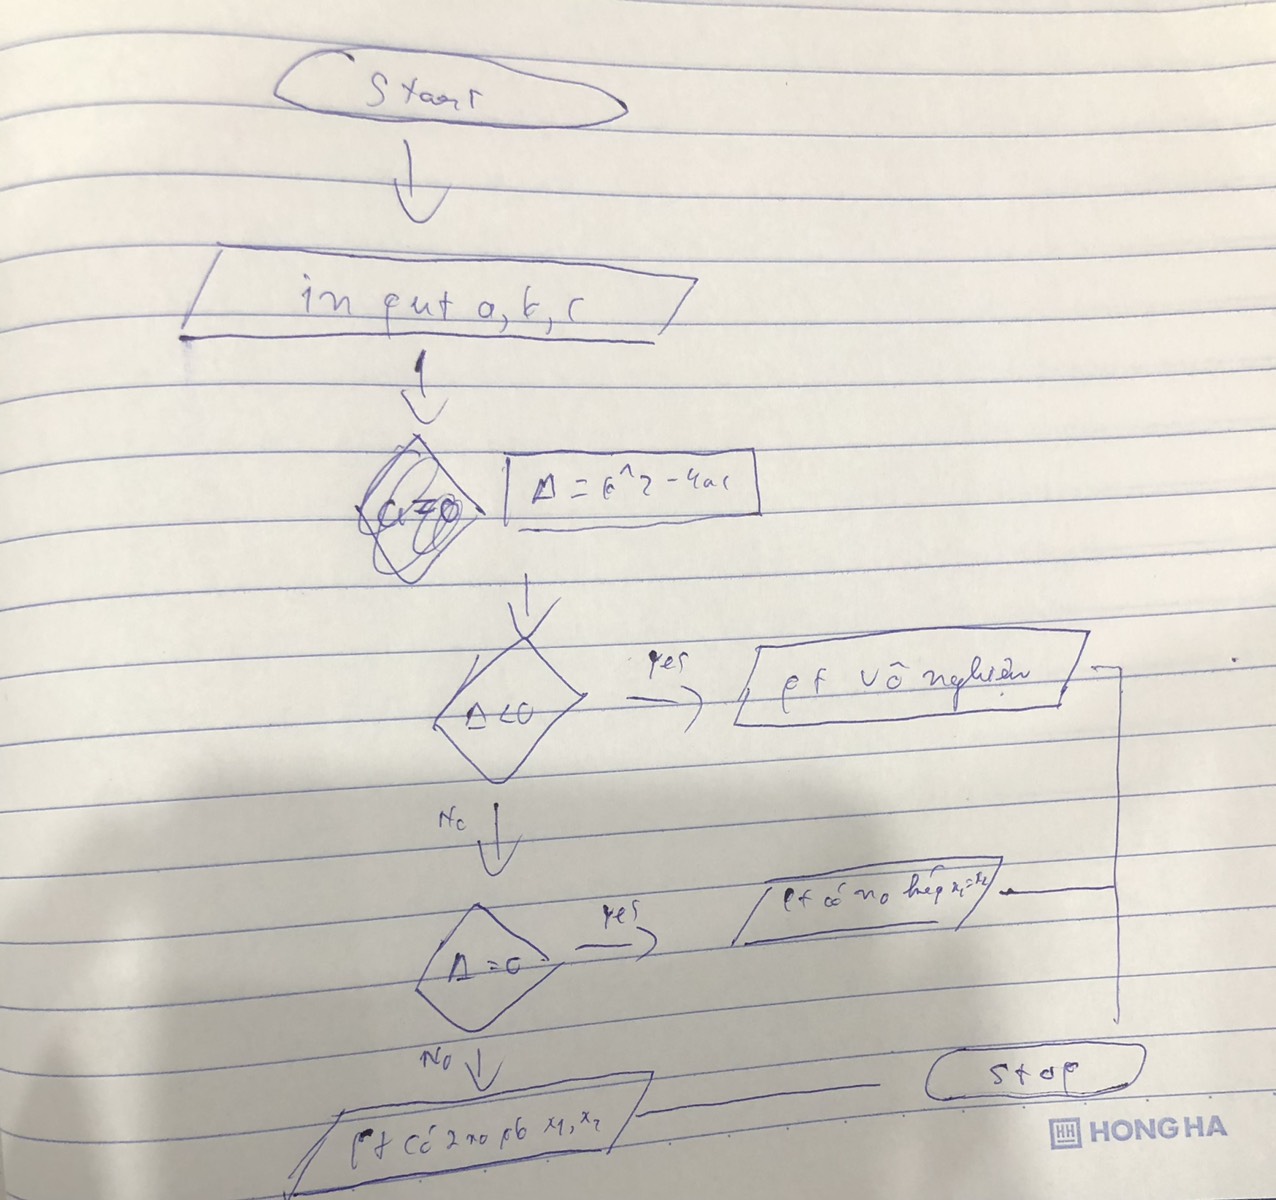 Start
input a, b, c
Δ = b^2 - 4ac
Δ < 0
yes
pt vô nghiệm
No
Δ = 0
yes
pt có no kép x₁=x₂
No
pt có 2 no pb x₁, x₂
Stop
HH HONG HA